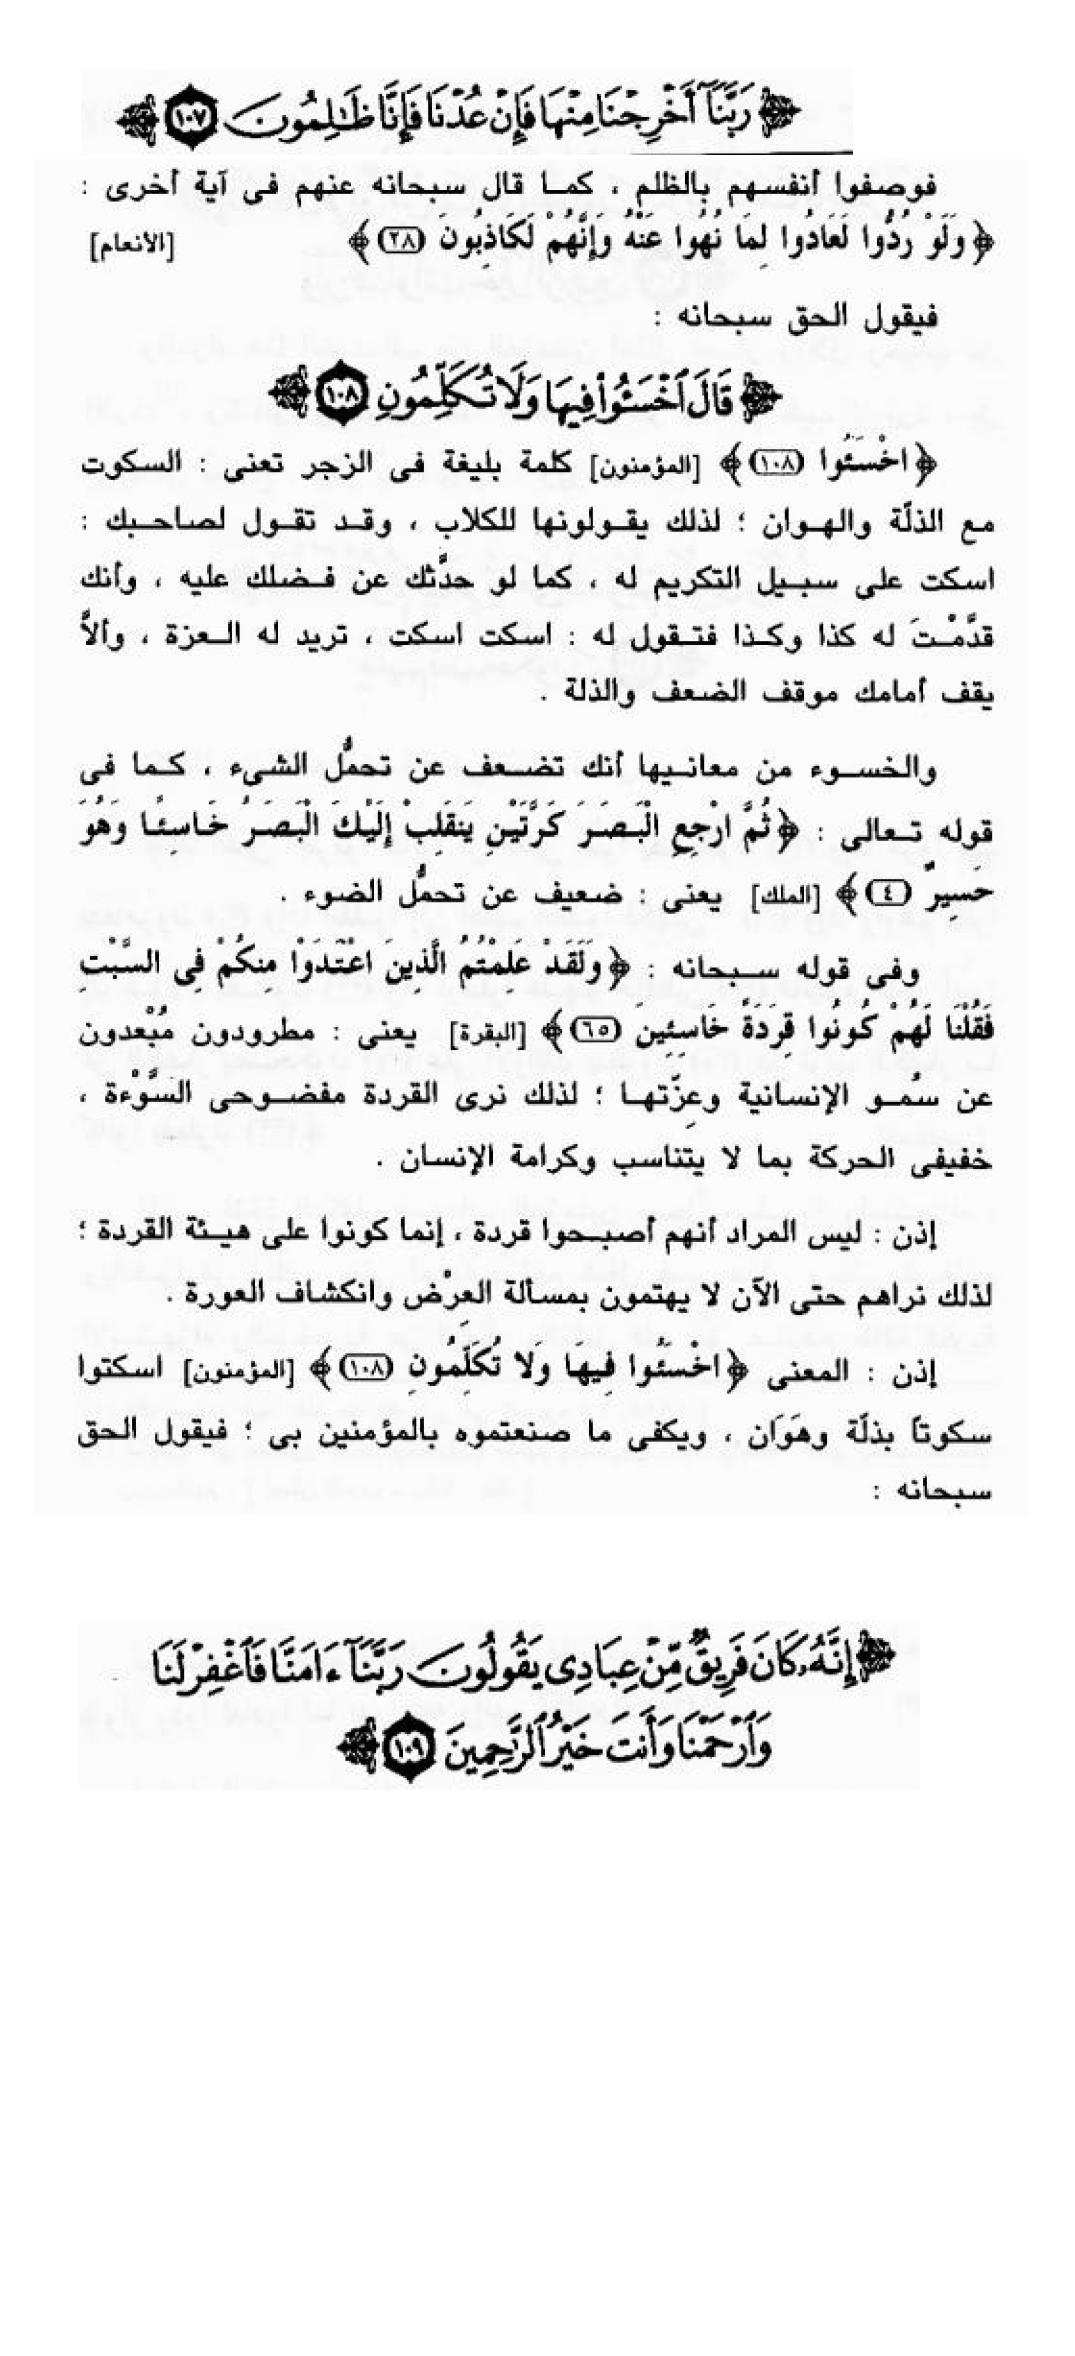 ﴿ رَبَّنَآ أَخۡرِجۡنَا مِنۡهَا فَإِنۡ عُدۡنَا فَإِنَّا ظَٰلِمُونَ ١٠٧ ﴾
فوصفوا أنفسهم بالظلم ، كما قال سبحانه عنهم فى آية أخرى :
﴿ وَلَوْ رُدُّوا لَعَادُوا لِمَا نُهُوا عَنْهُ وَإِنَّهُمْ لَكَاذِبُونَ (٢٨) ﴾ [الأنعام]
فيقول الحق سبحانه :
﴿ قَالَ ٱخۡسَـُٔواْ فِيهَا وَلَا تُكَلِّمُونِ ١٠٨ ﴾
﴿ اخْسَئُوا (١٠٨) ﴾ [المؤمنون] كلمة بليغة فى الزجر تعنى : السكوت
مع الذلّة والهوان ؛ لذلك يقولونها للكلاب ، وقد تقول لصاحبك :
اسكت على سبيل التكريم له ، كما لو حدَّثك عن فضلك عليه ، وأنك
قدَّمْتَ له كذا وكذا فتقول له : اسكت اسكت ، تريد له العزة ، وألاَّ
يقف أمامك موقف الضعف والذلة .
والخسوء من معانيها أنك تضعف عن تحمُّل الشىء ، كما فى
قوله تعالى : ﴿ ثُمَّ ارْجِعِ الْبَصَرَ كَرَّتَيْنِ يَنقَلِبْ إِلَيْكَ الْبَصَرُ خَاسِئًا وَهُوَ
حَسِيرٌ (٤) ﴾ [الملك] يعنى : ضعيف عن تحمُّل الضوء .
وفى قوله سبحانه : ﴿ وَلَقَدْ عَلِمْتُمُ الَّذِينَ اعْتَدَوْا مِنكُمْ فِى السَّبْتِ
فَقُلْنَا لَهُمْ كُونُوا قِرَدَةً خَاسِئِينَ (٦٥) ﴾ [البقرة] يعنى : مطرودون مُبْعدون
عن سُمو الإنسانية وعِزّتها ؛ لذلك نرى القردة مفضوحى السَّوْءة ،
خفيفى الحركة بما لا يتناسب وكرامة الإنسان .
إذن : ليس المراد أنهم أصبحوا قردة ، إنما كونوا على هيئة القردة ؛
لذلك نراهم حتى الآن لا يهتمون بمسألة العرْض وانكشاف العورة .
إذن : المعنى ﴿ اخْسَئُوا فِيهَا وَلا تُكَلِّمُونِ (١٠٨) ﴾ [المؤمنون] اسكتوا
سكوتاً بذلّة وهَوَان ، ويكفى ما صنعتموه بالمؤمنين بى ؛ فيقول الحق
سبحانه :
﴿ إِنَّهُۥ كَانَ فَرِيقٌ مِّنۡ عِبَادِى يَقُولُونَ رَبَّنَآ ءَامَنَّا فَٱغۡفِرۡ لَنَا
وَٱرۡحَمۡنَا وَأَنتَ خَيۡرُ ٱلرَّٰحِمِينَ ١٠٩ ﴾